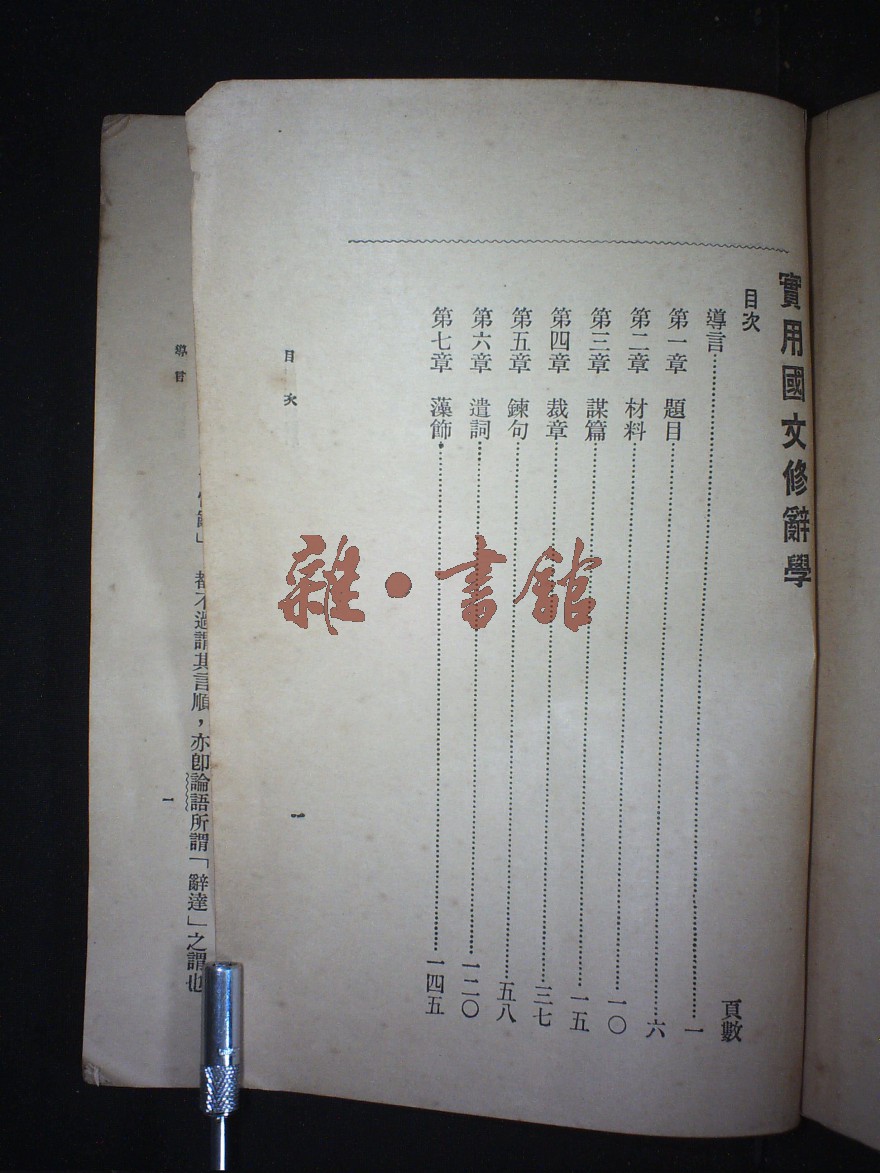 實用國文修辭學
目次
頁數
導言……一
第一章 題目……六
第二章 材料……一〇
第三章 謀篇……一五
第四章 裁章……三七
第五章 鍊句……五八
第六章 遣詞……一二〇
第七章 藻飾……一四五
目次
一
辭」都不過謂其言順，亦卽論語所謂「辭達」之謂也
導言
一
雜·書館